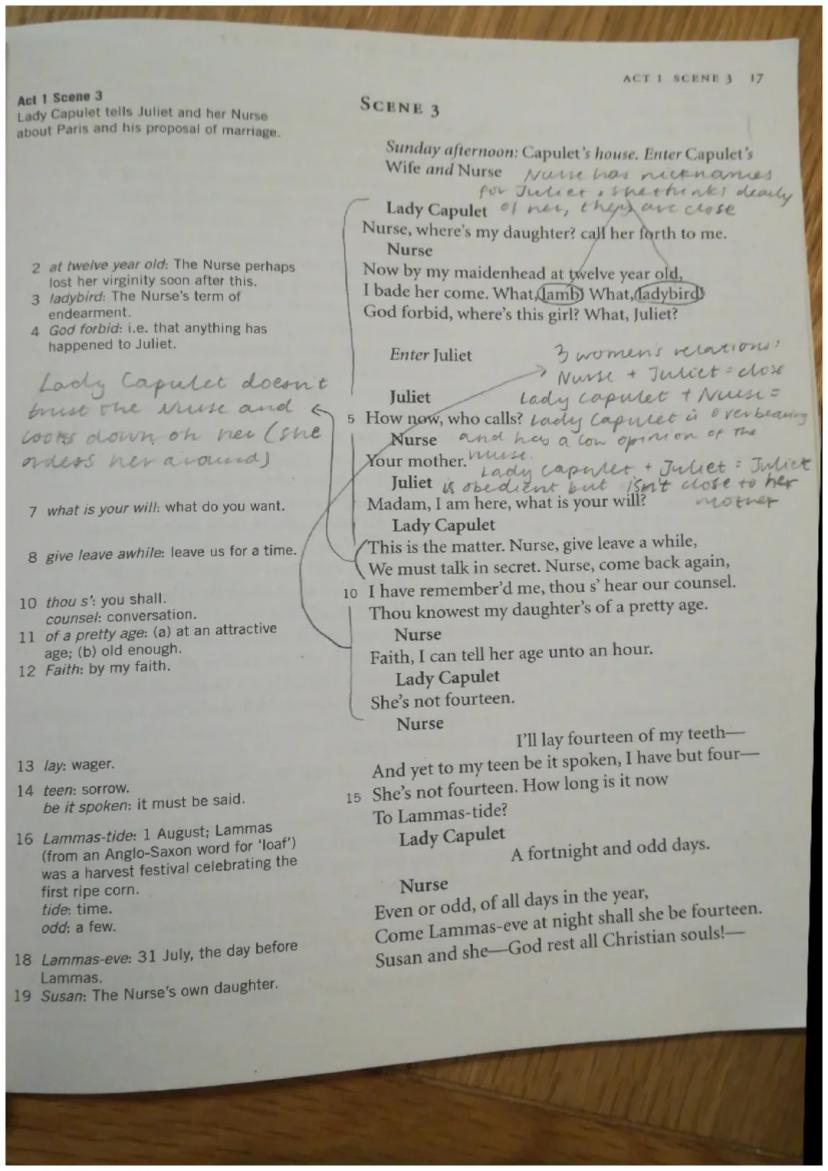 ACT 1 SCENE 3 17
Act 1 Scene 3
Lady Capulet tells Juliet and her Nurse
about Paris and his proposal of marriage.
2 at twelve year old: The Nurse perhaps
lost her virginity soon after this.
3 ladybird: The Nurse's term of
endearment.
4 God forbid: i.e. that anything has
happened to Juliet.
Lady Capulet doesn't
trust the Nurse and
looks down on her (she
orders her around)
7 what is your will: what do you want.
8 give leave awhile: leave us for a time.
10 thou s': you shall.
counsel: conversation.
11 of a pretty age: (a) at an attractive
age; (b) old enough.
12 Faith: by my faith.
13 lay: wager.
14 teen: sorrow.
be it spoken: it must be said.
16 Lammas-tide: 1 August; Lammas
(from an Anglo-Saxon word for 'loaf')
was a harvest festival celebrating the
first ripe corn.
tide: time.
odd: a few.
18 Lammas-eve: 31 July, the day before
Lammas.
19 Susan: The Nurse's own daughter.
SCENE 3
Sunday afternoon: Capulet's house. Enter Capulet's
Wife and Nurse
Nurse has nicknames
for Juliet, she thinks dearly
of her, they are close
Lady Capulet
Nurse, where's my daughter? call her forth to me.
Nurse
Now by my maidenhead at twelve year old,
I bade her come. What, lamb! What, ladybird!
God forbid, where's this girl? What, Juliet?
Enter Juliet
3 women's relations:
Nurse + Juliet = close
Lady Capulet + Nurse =
Lady Capulet is overbearing
and has a low opinion of the
nurse.
Lady Capulet + Juliet = Juliet
is obedient but isn't close to her
mother
Juliet
5 How now, who calls?
Nurse
Your mother.
Juliet
Madam, I am here, what is your will?
Lady Capulet
This is the matter. Nurse, give leave a while,
We must talk in secret. Nurse, come back again,
10 I have remember'd me, thou s' hear our counsel.
Thou knowest my daughter's of a pretty age.
Nurse
Faith, I can tell her age unto an hour.
Lady Capulet
She's not fourteen.
Nurse
I'll lay fourteen of my teeth—
And yet to my teen be it spoken, I have but four—
15 She's not fourteen. How long is it now
To Lammas-tide?
Lady Capulet
A fortnight and odd days.
Nurse
Even or odd, of all days in the year,
Come Lammas-eve at night shall she be fourteen.
Susan and she—God rest all Christian souls!—